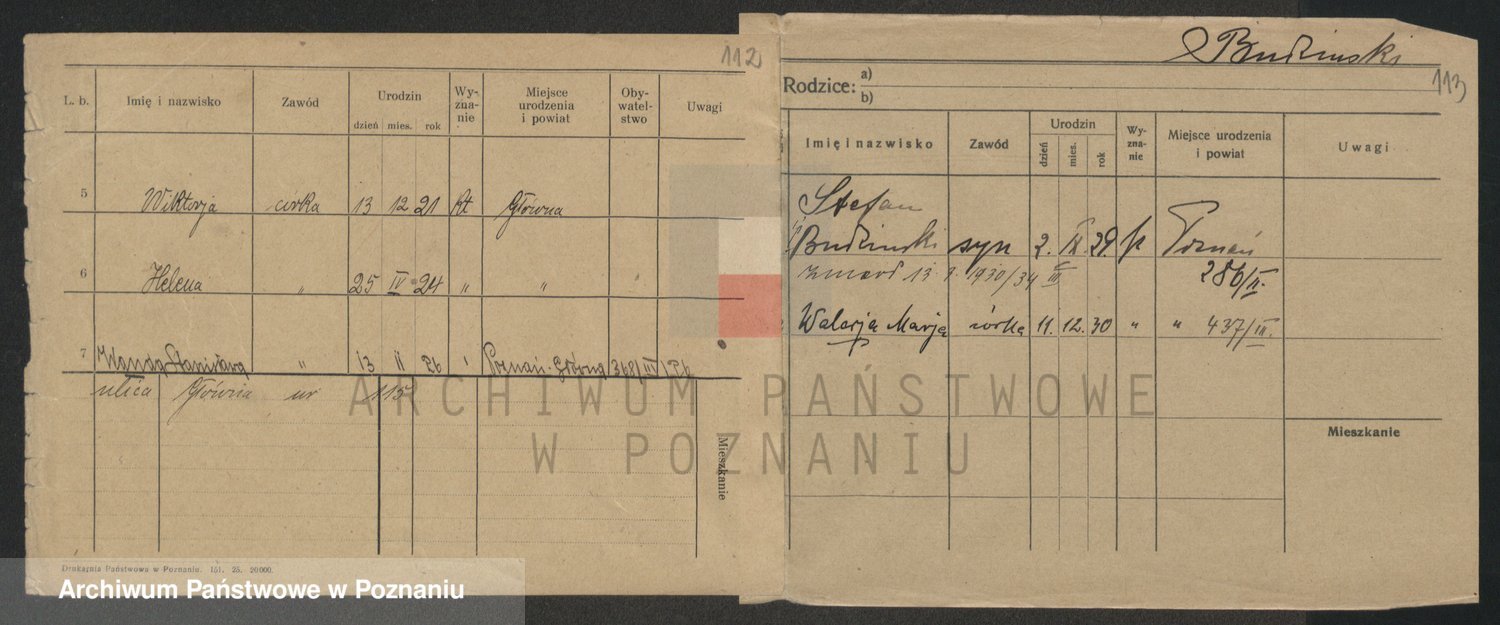 112
L. b. Imię i nazwisko Zawód Urodzin dzień mies. rok Wy- zna- nie Miejsce urodzenia i powiat Oby- watel- stwo Uwagi
5 Wiktorja córka 13 12 21 kt Główna
6 Helena " 25 IV 24 " "
7 Wanda Stanisława " 13 II 26 " Poznań-Główna 368/III/26
ulica Główna nr 115
Mieszkanie
Drukarnia Państwowa w Poznaniu. 151. 25. 20000.
Budzinski
113
Rodzice: a)
b)
Imię i nazwisko Zawód Urodzin dzień mies. rok Wy- zna- nie Miejsce urodzenia i powiat Uwagi
Stefan
Budzinski syn 2. IX. 29. Poznań
zmarł 13. 9. 1930/34 III 286/II.
Walerja Marja córka 11. 12. 30 " " 437/III.
Mieszkanie
ARCHIWUM PAŃSTWOWE
W POZNANIU
Archiwum Państwowe w Poznaniu